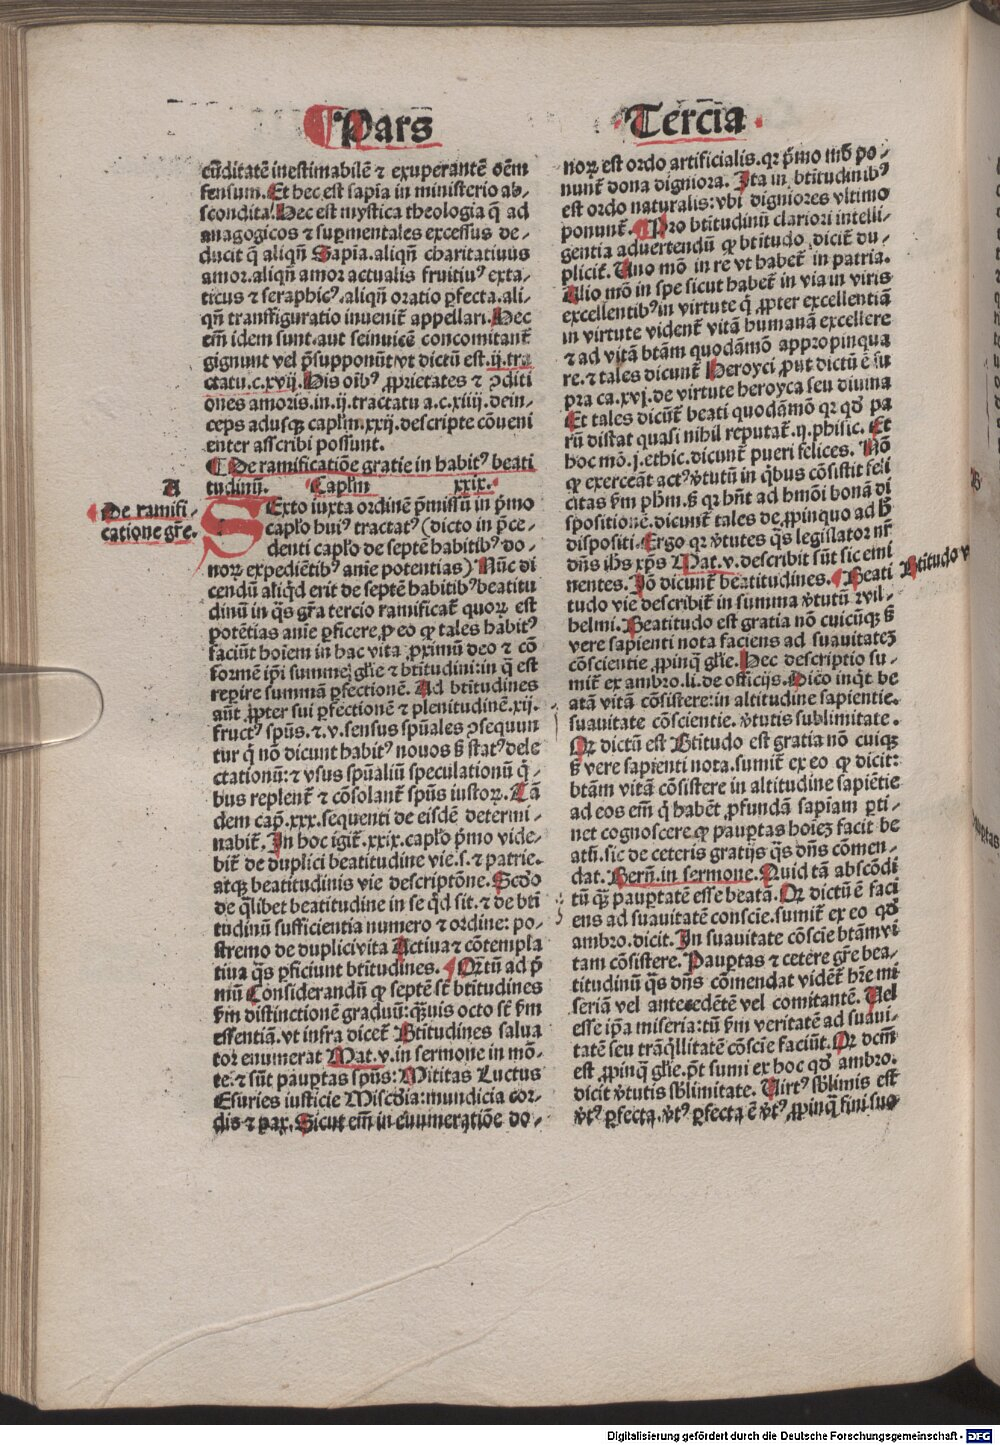 Pars Tercia
cūditatē inestimabilē ⁊ exuperantē oēm
sensum. Et hec est sapīa in ministerio ab-
scondita. Hec est mystica theologia q̄ ad
anagogicos ⁊ supmentales excessus de-
ducit q̄ aliqn̄ Sapīa. aliqn̄ charitatiuus
amor. aliqn̄ amor actualis fruitiuꝰ exta-
ticus ⁊ seraphicꝰ. aliqn̄ oratio ꝑfecta. ali-
qn̄ transfiguratio inuenit̄ appellari. Hec
em̄ idem sunt. aut seinuicē concomitant̄
gignunt vel p̄supponūt vt dictū est. ij. tra
ctatu. c. xvij. His oībꝰ ꝓprietates ⁊ ꝯditi
ones amoris. in. ij. tractatu a. c. xiiij. dein-
ceps adusqꝫ caplm̄. xxij. descripte cōueni
enter asscribi possunt.
¶ De ramificatiōe gratie in habitꝰ beati
tudinū. Caplm̄ xxix.
A
De ramifi-
catione gr̄e.
SExto iuxta ordinē p̄missū in p̄mo
caplo huiꝰ tractatꝰ (dicto in p̄ce-
denti caplo de septē habitibꝰ do-
noꝝ expediētibꝰ anīe potentias) Nūc di
cendū aliqd erit de septē habitibꝰ beatitu
dinū in q̄s gr̄a tercio ramificat̄ quoꝝ est
potētias anīe ꝑficere, ꝓ eo qꝫ tales habitꝰ
faciūt hoīem in hac vita ꝓximū deo ⁊ cō
formē ip̄i summe gl̄ie ⁊ btītudini: in q̄ est
reꝑire summā ꝑfectionē. Ad btītudines
aūt ꝓpter sui ꝑfectionē ⁊ plenitudinē. xij.
fructꝰ spūs. ⁊. v. sensus spūales ꝯsequun
tur q̄ nō dicunt habitꝰ nouos sꝫ statꝰ dele
ctationū: ⁊ vsus spūaliū speculationū q̄-
bus replent̄ ⁊ cōsolant̄ spūs iustoꝝ. Tā
dem cap̄. xxx. sequenti de eisdē determi-
nabit̄. In hoc igit̄. xxix. caplo p̄mo vide-
bit̄ de duplici beatitudine vie. s. ⁊ patrie.
atqꝫ beatitudinis vie descriptōne. Scdo
de q̄libet beatitudine in se qd sit. ⁊ de btī
tudinū sufficientia numero ⁊ ordine: po-
stremo de duplici vita Actiua ⁊ cōtempla
tiua q̄s ꝑficiunt btītudines. ¶ Qr̄tū ad p̄
mū Considerandū qꝫ septē st̄ btītudines
fm̄ distinctionē graduū: qꝫuis octo st̄ fm̄
essentiā. vt infra dicet̄ Btītudines salua
tor enumerat Mat. v. in sermone in mō-
te. ⁊ sūt pauꝑtas spūs: Mititas Luctus
Esuries iusticie Miscdia: mundicia cor-
dis ⁊ pax. Sicut em̄ in enumeratiōe do-
noꝝ est ordo artificialis. qr p̄mo mō po-
nunt̄ dona digniora. Ita in btītudinibꝰ
est ordo naturalis: vbi digniores vltimo
ponunt̄. ¶ Pro btītudinū clariori intelli-
gentia aduertendū qꝫ btītudo dicit̄ du-
plicit̄. Uno mō in re vt habet̄ in patria.
Alio mō in spe sicut habet̄ in via in viris
excellentibꝰ in virtute q̄ ꝓpter excellentiā
in virtute vident̄ vitā humanā excellere
⁊ ad vitā btām quodāmō appropinqua
re. ⁊ tales dicunt̄ Heroyci ꝓut dictū ē su
pra ca. xvj. de virtute heroyca seu diuina
Et tales dicūt̄ beati quodāmō qr qd pa
rū distat quasi nihil reputat̄. ij. phisic. Et
hoc mō. j. ethic. dicunt̄ pueri felices. Nō
qꝫ exerceāt actꝰ v̄tutū in q̄bus cōsistit feli
citas fm̄ phm̄. sꝫ qr hn̄t ad hmōi bonā di
spositionē. dicunt̄ tales de ꝓpinquo ad h̄
dispositi. Ergo qr v̄tutes q̄s legislator nr̄
dn̄s ihs xp̄s Mat. v. describit sūt sic emi
nentes. Iō dicunt̄ beatitudines. ¶ Beati
tudo vie describit̄ in summa v̄tutū wil-
helmi. Beatitudo est gratia nō cuicūqꝫ sꝫ
vere sapienti nota faciens ad suauitateꝫ
cōscientie ꝓpinq̄ gl̄ie. Hec descriptio su-
mit̄ ex ambro. li. de officijs. Dico inqt be
atā vitā cōsistere: in altitudine sapientie.
suauitate cōscientie. v̄tutis sublimitate.
Qr dictū est Btītudo est gratia nō cuiqꝫ
sꝫ vere sapienti nota. sumit̄ ex eo qꝫ dicit:
btām vitā cōsistere in altitudine sapiētie
ad eos em̄ q̄ habēt ꝓfundā sapīam ꝑti-
net cognoscere. qꝫ pauꝑtas hoieꝫ facit be
atū. sic de ceteris gratijs q̄s dn̄s cōmen-
dat. Bern̄. in sermone. Quid tā abscōdi
tū qꝫ pauꝑtatē esse beatā. Qr dictū ē faci
ens ad suauitatē conscīe. sumit̄ ex eo qd
ambro. dicit. In suauitate cōscīe btām vi
tam cōsistere. Pauꝑtas ⁊ cetere gr̄e bea-
titudinū q̄s dn̄s cōmendat vidēt̄ hr̄e mi
seriā vel antecedētē vel comitantē. Uel
esse ip̄a miseria: tū fm̄ veritatē ad suaui-
tatē seu trāq̄llitatē cōscīe faciūt. Qr dcm̄
est ꝓpinq̄ gl̄ie. p̄t sumi ex hoc qd ambro.
dicit v̄tutis sb̄limitate. Uirtꝰ sb̄limis est
v̄tꝰ ꝑfecta. v̄tꝰ ꝑfecta ē v̄tꝰ ꝓpinq̄ fini suo
Btītudo v
Digitalisierung gefördert durch die Deutsche Forschungsgemeinschaft - DFG